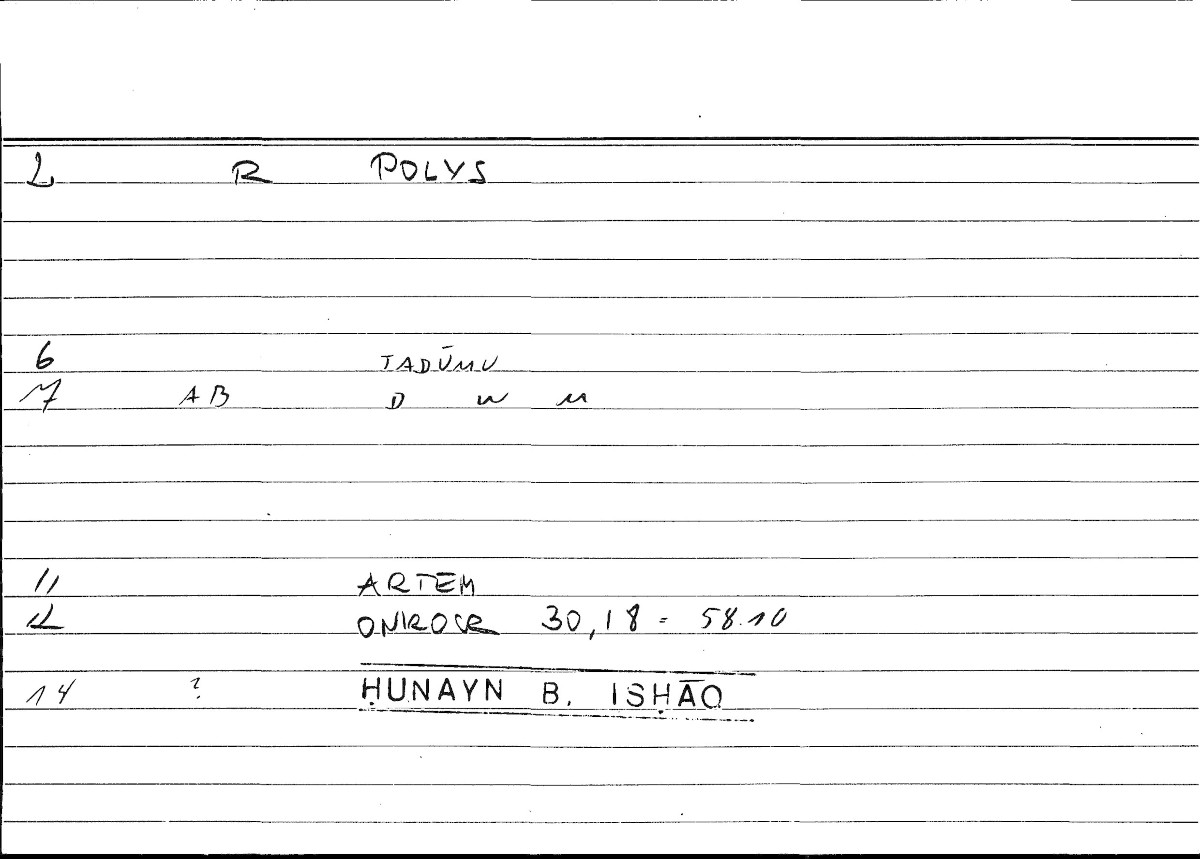 2 R POLYS
6 TADŪMU
7 AB D W M
11 ARTEM
12 ONIROCR 30,18 = 58.10
14 ? ḤUNAYN B. ISḤĀQ